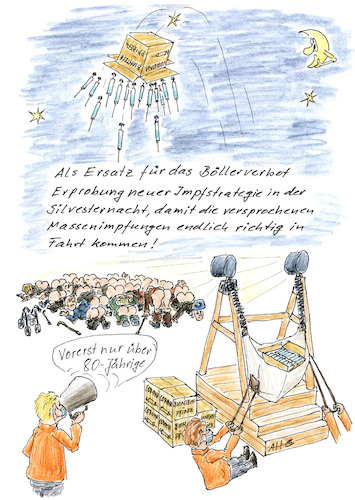 Als Ersatz für das Böllerverbot
Erprobung neuer Impfstrategie in der
Silvesternacht, damit die versprochenen
Massenimpfungen endlich richtig in
Fahrt kommen!
Vorerst nur über
80-Jährige